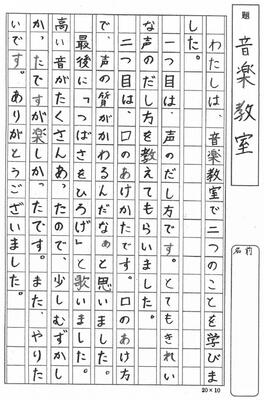 題
音楽教室
名前
わたしは、音楽教室で二つのことを学びま
した。
一つ目は、声のだし方です。とてもきれい
な声のだし方を教えてもらいました。
二つ目は、口のあけかたです。口のあけ方
で、声の質がかわるんだなぁと思いました。
最後に「つばさをひろげ」と歌いました。
高い音がたくさんあったので、少しむずかし
かったですが楽しかったです。また、やりた
いです。ありがとうございました。
20×10